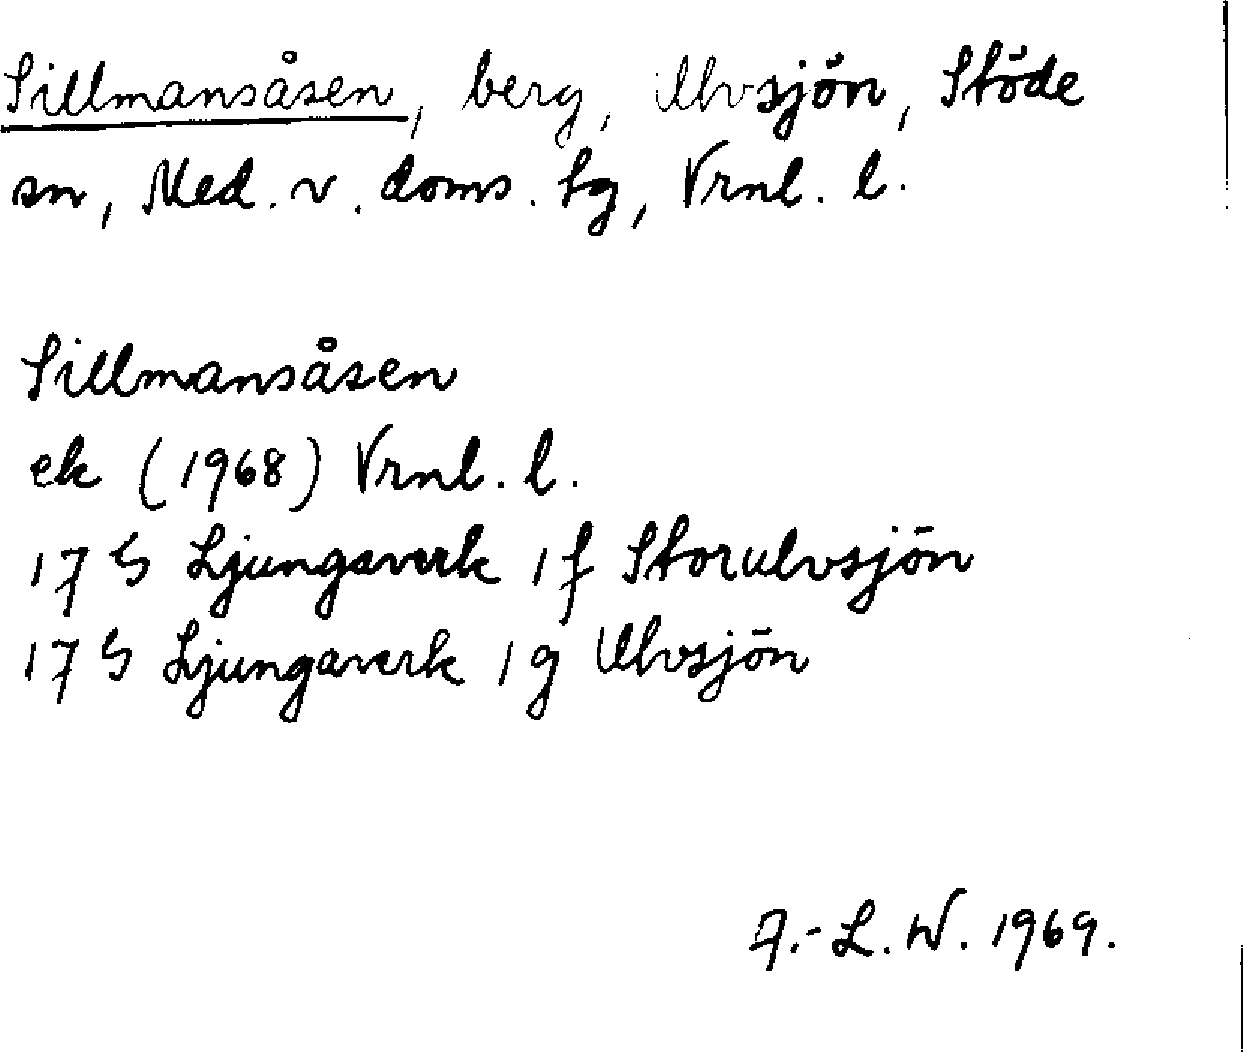 Sillmansåsen, berg, Ulvsjön, Stöde
sn, Med. v. doms. tg, Vrnl. l.
Sillmansåsen
ek (1968) Vrnl. l.
17 G Ljungaverk 1 f Storulvsjön
17 G Ljungaverk 1 g Ulvsjön
A.-L. W. 1969.